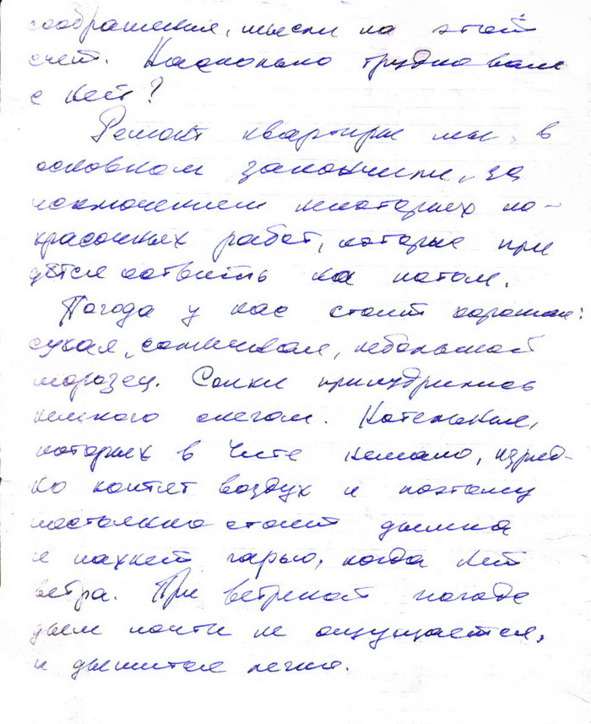 соображения, мысли на этой
счет. Насколько трудно вам
с ней?
Ремонт квартиры мы в
основном закончили, за
исключением некоторых по-
красочных работ, которые при
дётся оставить на потом.
Погода у нас стоит хорошая:
сухая, солнечная, небольшой
морозец. Сопки припудрились
немного снегом. Котельные,
которых в Чите немало, изряд-
но коптят воздух и поэтому
постоянно стоит дымка
и пахнет гарью, когда нет
ветра. При ветреной погоде
дым почти не ощущается,
и дышится легче.